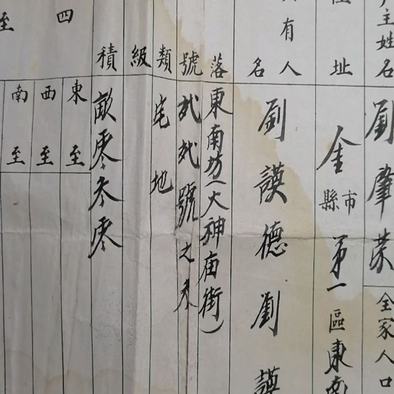 戶主姓名 劉肇榮 全家人口
住址 金 縣市 第一區東南
所有人名 劉謨德 劉謨
落 東南坊(大神庙街)
號 弍弍號之叁
類 宅地
級
積 畝零叁零
四至
東至
西至
南至